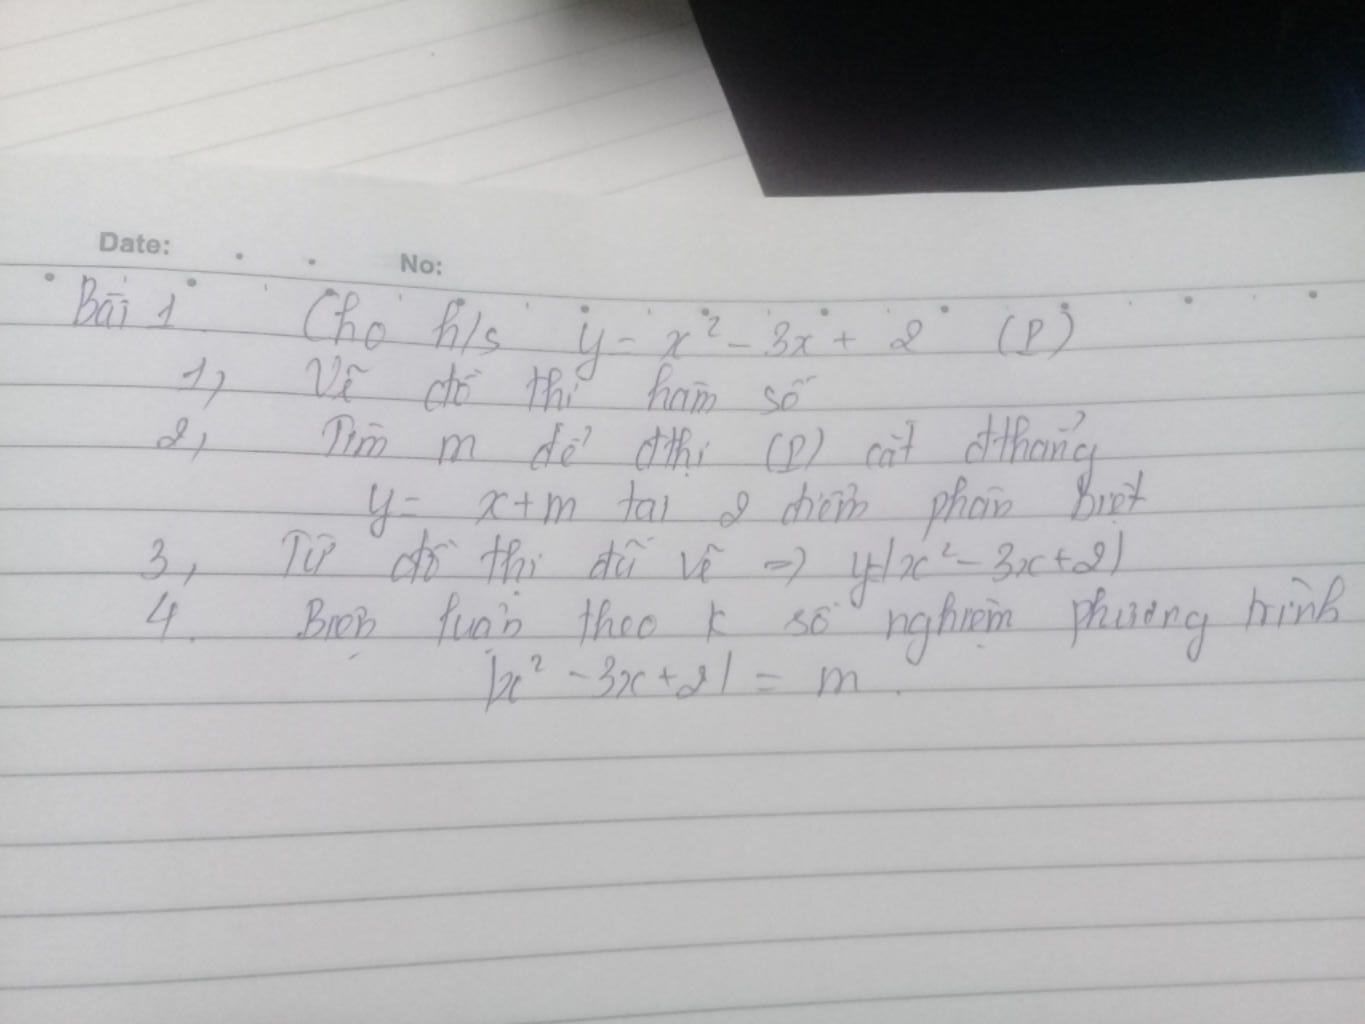 Date: No:
Bài 1 Cho h/s y = x² - 3x + 2 (P)
1, Vẽ đồ thị hàm số
2, Tìm m để đthị (P) cắt đthẳng
y = x + m tại 2 điểm phân biệt
3, Từ đồ thị đã vẽ => y=|x² - 3x + 2|
4. Biện luận theo k số nghiệm phương trình
|x² - 3x + 2| = m.